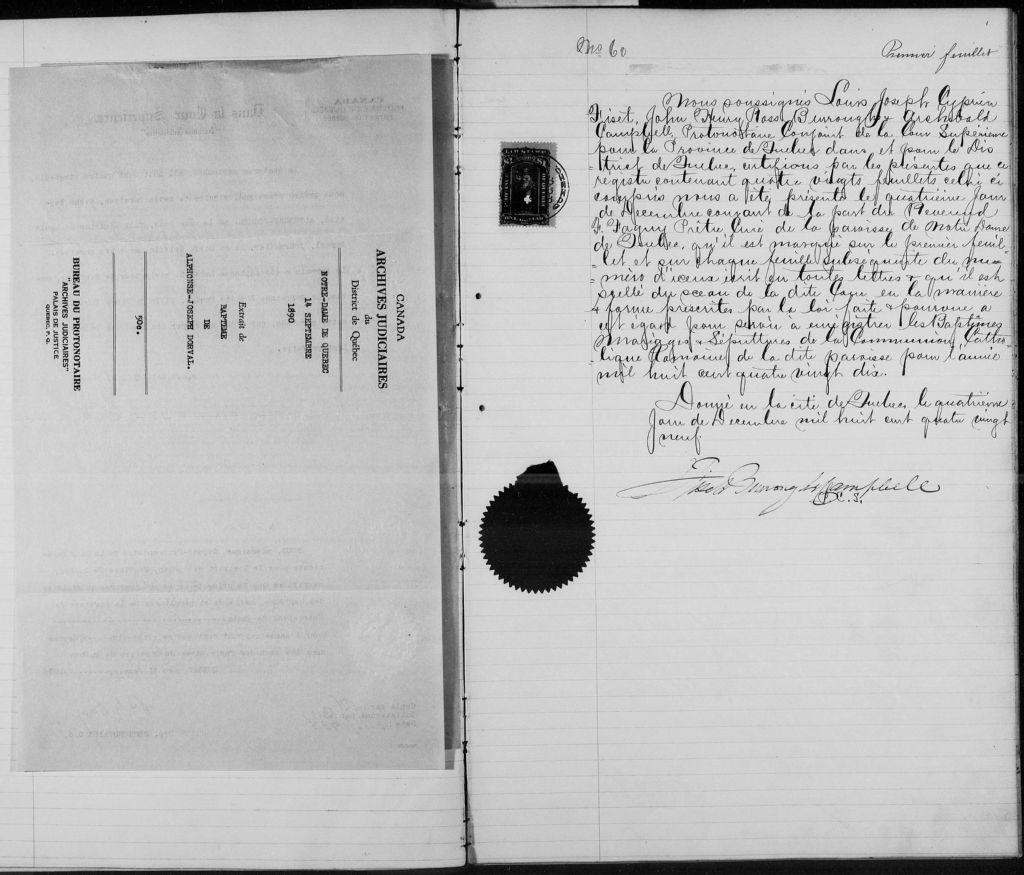 CANADA
ARCHIVES JUDICIAIRES
du
District de Québec
NOTRE-DAME DE QUEBEC
14 SEPTEMBRE
1890
Extrait de
BAPTEME
DE
ALPHONSE-JOSEPH DORVAL.
50c.
BUREAU DU PROTONOTAIRE
"ARCHIVES JUDICIAIRES"
PALAIS DE JUSTICE
QUEBEC, P. Q.
No 60
Premier feuillet
Nous soussignés Louis Joseph Cyprien
Fiset, John Henry Ross Burroughs & Archibald
Campbell, Protonotaire Conjoint de la Cour Supérieure
pour la Province de Québec dans, et pour le Dis
-trict de Québec, certifions par les présentes que ce
registre contenant quatre vingts feuillets celui ci
compris nous a été présenté le quatrième jour
de Decembre courant de la part du Reverend
F. Faguy Prêtre Curé de la paroisse de Notre Dame
de Québec, qu'il est marqué sur le premier feuil
-let et sur chaque feuille subsequente du nu
-mero d'iceux écrit en toutes lettres & qu'il est
scellé du sceau de la dite Cour en la manière
& forme prescrites par la loi faite & pourvue a
cet égard pour servir a enregistrer les Baptêmes
Mariages & Sépultures de la Communion Catho
-lique Romaine de la dite paroisse pour l'année
mil huit cent quatre vingt dix.
Donné en la cité de Québec, le quatrième
jour de Decembre mil huit cent quatre vingt
neuf.
Fiset Burroughs Campbell
P.C.S.